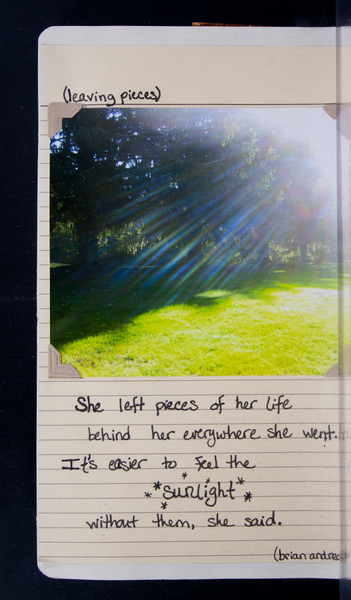 (leaving pieces)
She left pieces of her life
behind her everywhere she went.
It's easier to feel the
*sunlight*
without them, she said.
(brian andreas